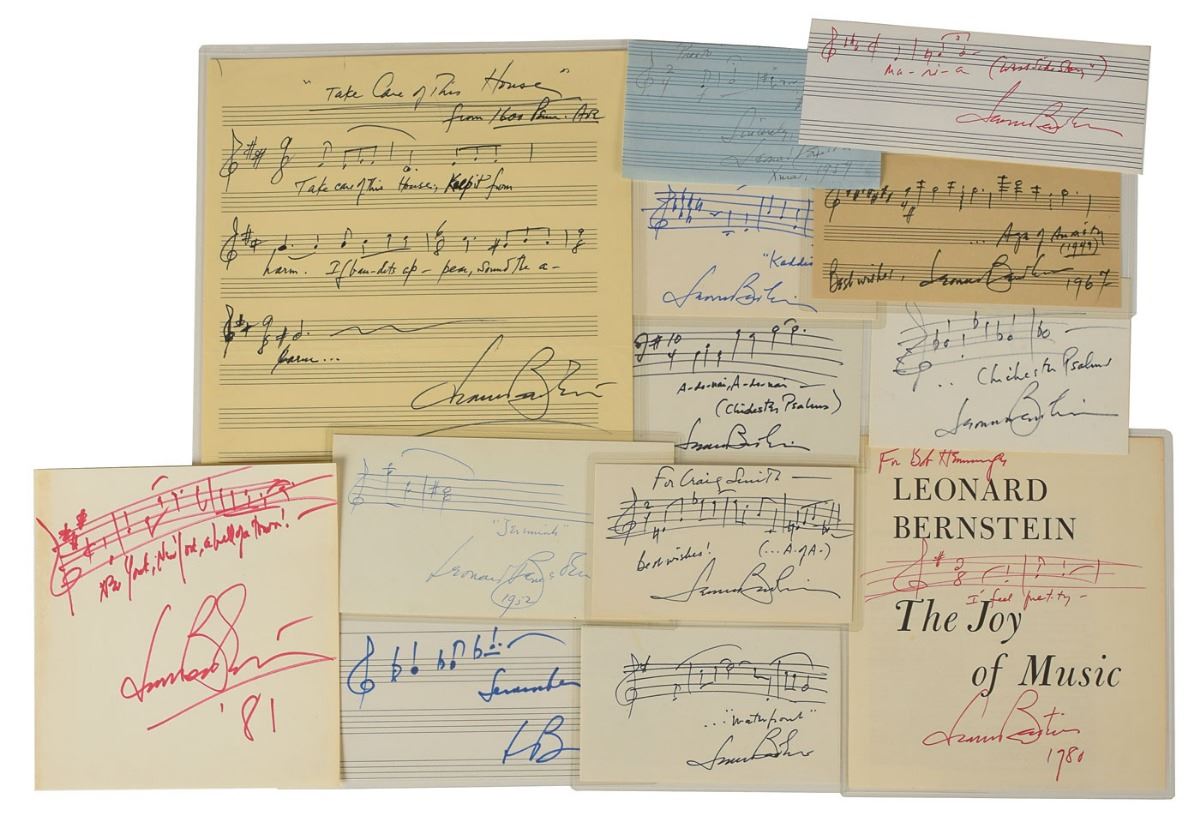 "Take Care of This House"
from 1600 Penn. Ave
Take care of this House, Keep it from
harm. If ban-dits ap-pear, sound the a-
larm...
Leonard Bernstein
Sincerely,
Leonard Bernstein
1959
Ma-ri-a (West Side Story")
Leonard Bernstein
"Kaddis
Leonard Bernstein
... Age of Anxiety
(1949)
Best wishes, Leonard Bernstein 1967
A-do-nai, A-do-nai —
(Chichester Psalms)
Leonard Bernstein
... Chichester Psalms
Leonard Bernstein
New York, New York, a hell of a town! —
Leonard Bernstein
'81
"Jeremiah"
Leonard Bernstein
1952
For Craig Smith —
best wishes! (...A. of A.)
Leonard Bernstein
LB
..."Waterfront"
Leonard Bernstein
For Bob Hemmings
LEONARD
BERNSTEIN
I feel pretty —
The Joy
of Music
Leonard Bernstein
1980